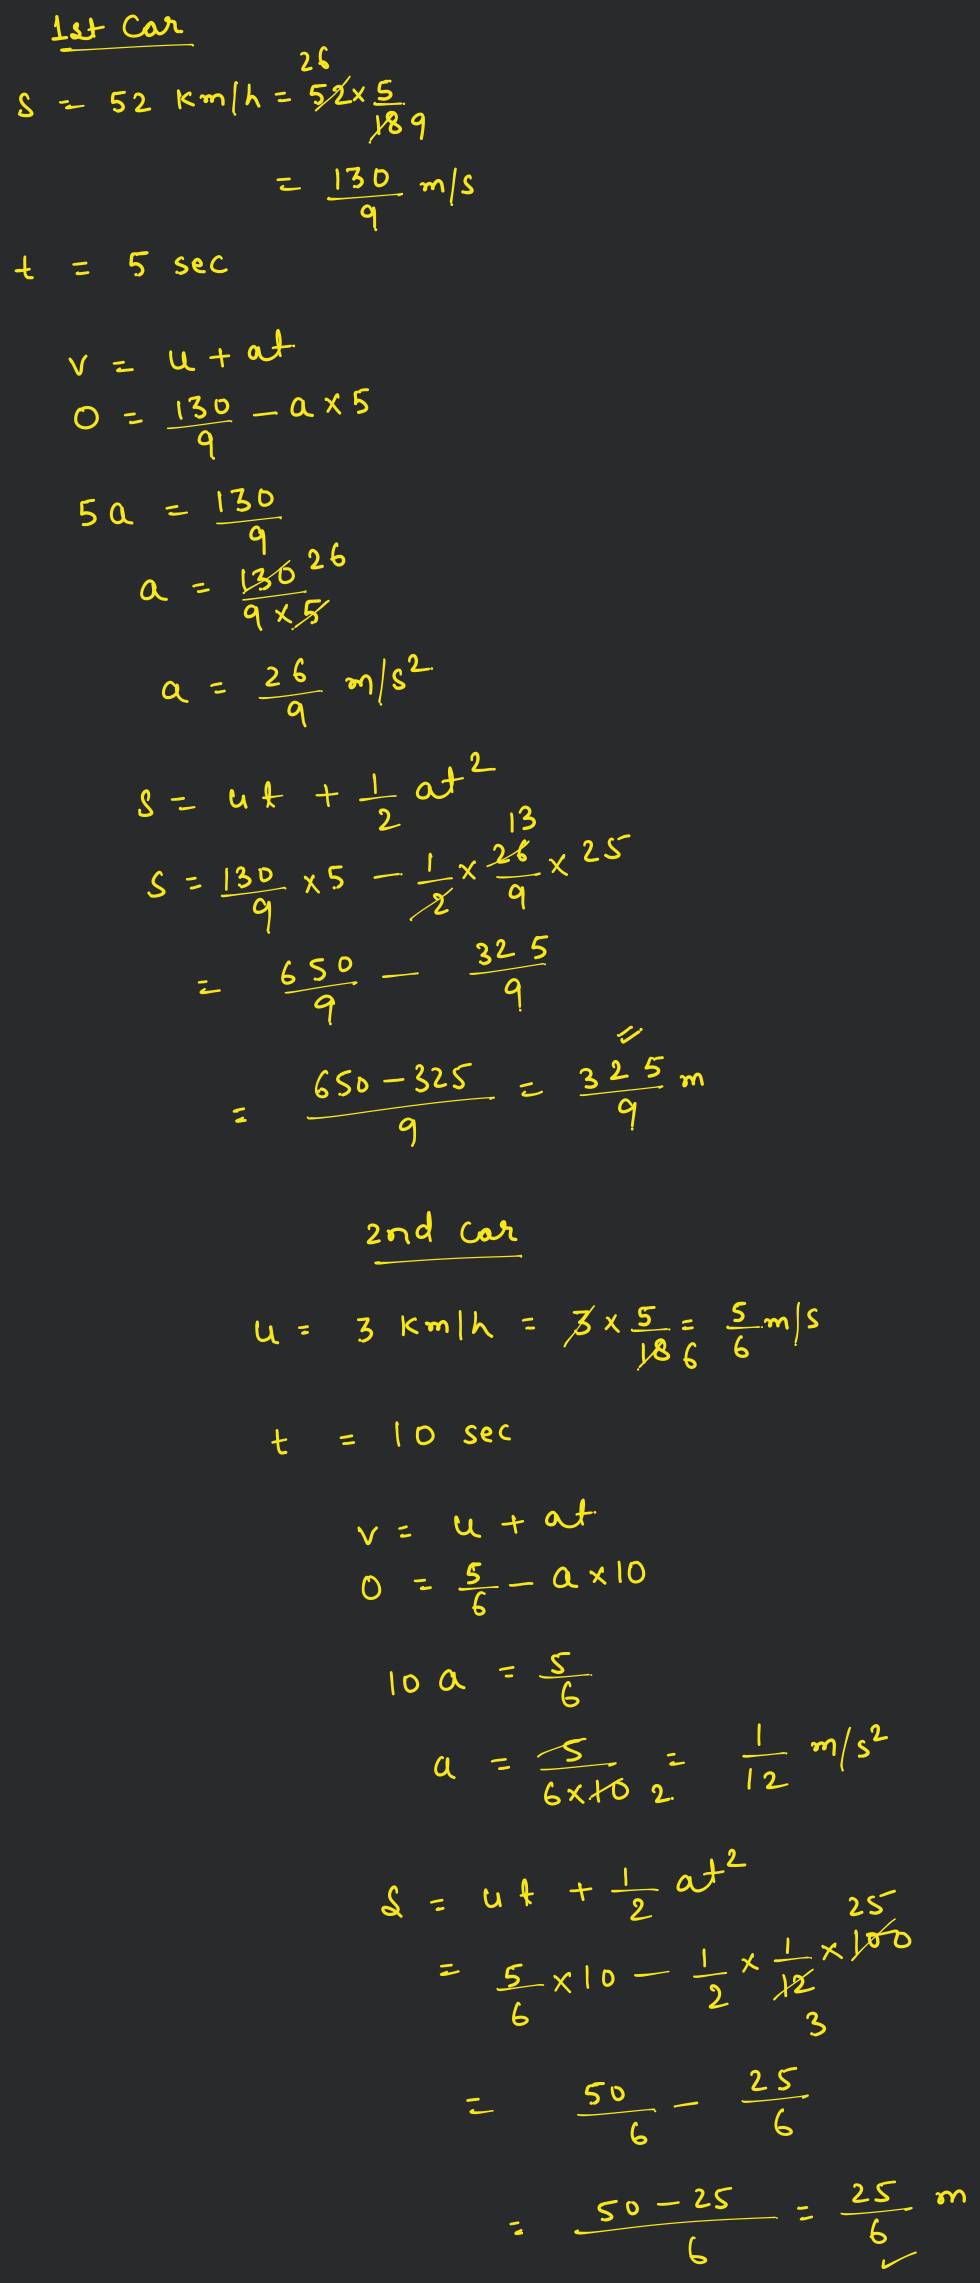 1st Car
S = 52 km/h = 52 × 5/18 26 9
= 130/9 m/s
t = 5 sec
v = u + at
0 = 130/9 - a × 5
5a = 130/9
a = 130/(9 × 5) 26
a = 26/9 m/s²
S = ut + 1/2 at²
S = 130/9 × 5 - 1/2 × 26/9 × 25 13
= 650/9 - 325/9
= (650 - 325)/9 = 325/9 m
2nd car
u = 3 km/h = 3 × 5/18 6 = 5/6 m/s
t = 10 sec
v = u + at
0 = 5/6 - a × 10
10 a = 5/6
a = 5/(6 × 10) 2 = 1/12 m/s²
S = ut + 1/2 at²
= 5/6 × 10 - 1/2 × 1/12 × 100 25 3
= 50/6 - 25/6
= (50 - 25)/6 = 25/6 m